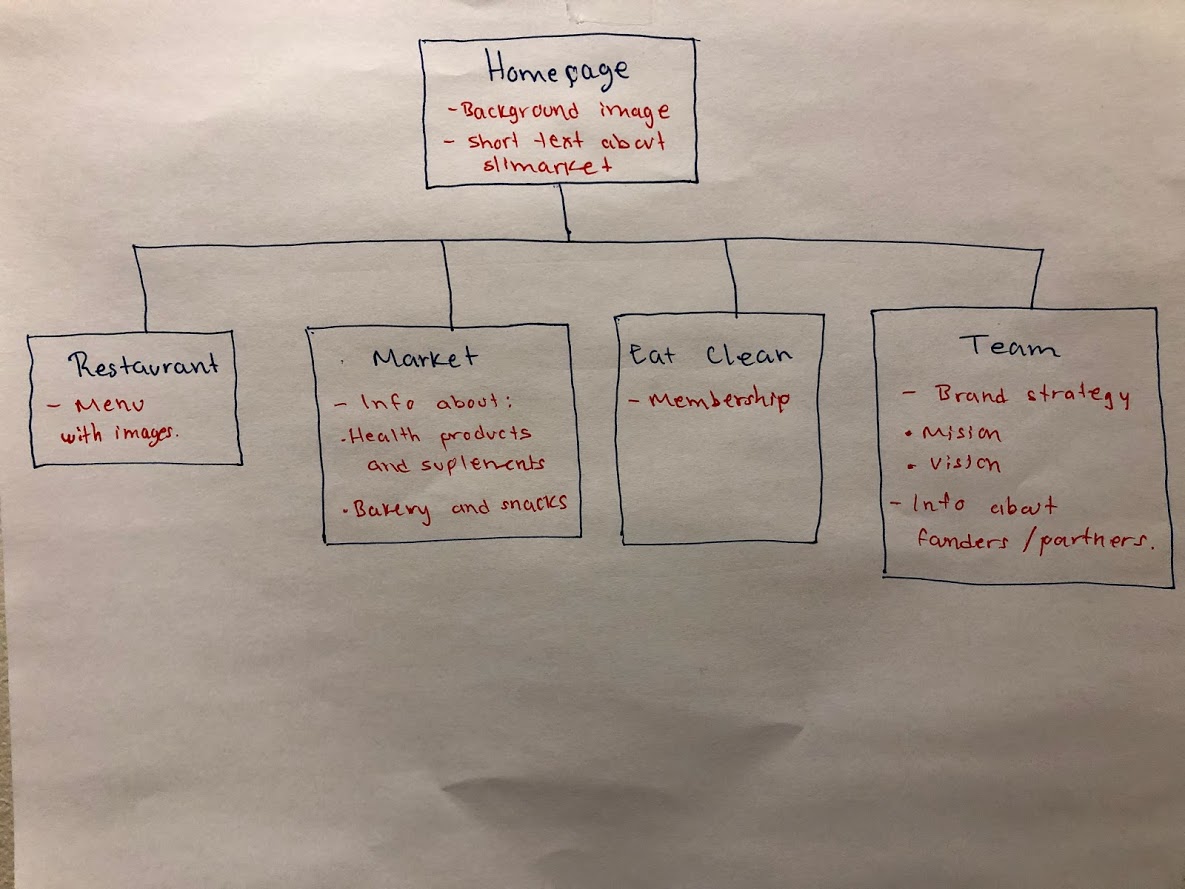 Homepage
- Background image
- short text about
slimarket
Restaurant
- Menu
with images.
Market
- Info about:
· Health products
and suplements
· Bakery and snacks
Eat Clean
- Membership
Team
- Brand strategy
• Mision
• Vision
- Info about
founders / partners.